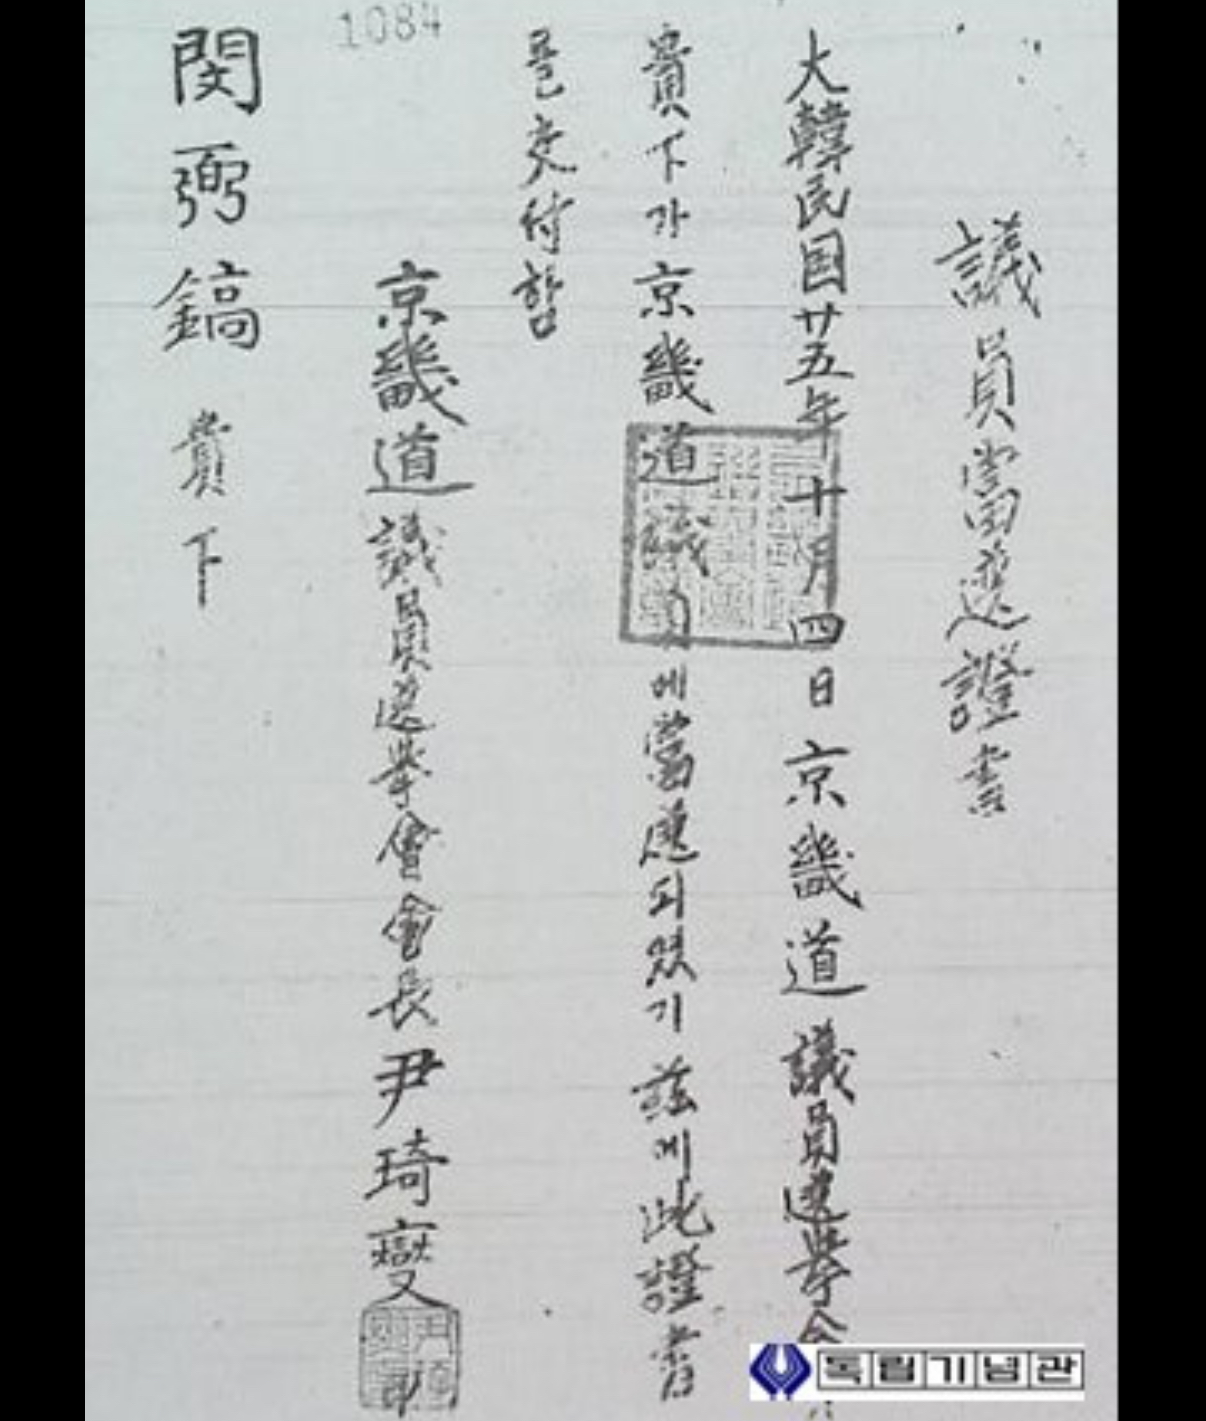 議員當選證書
大韓民国廿五年十月四日京畿道議員選擧会
貴下가京畿道議員에當選되였기玆에此證書
를交付함
1084
京畿道議員選擧會會長尹琦燮
閔弼鎬貴下
독립기념관